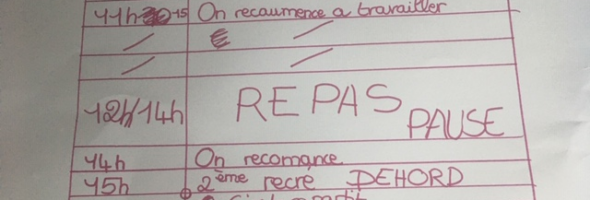 11h 15 On recaumence a travailler
12h/14h REPAS PAUSE
14h On recomance
15h 2ème recré DEHORD